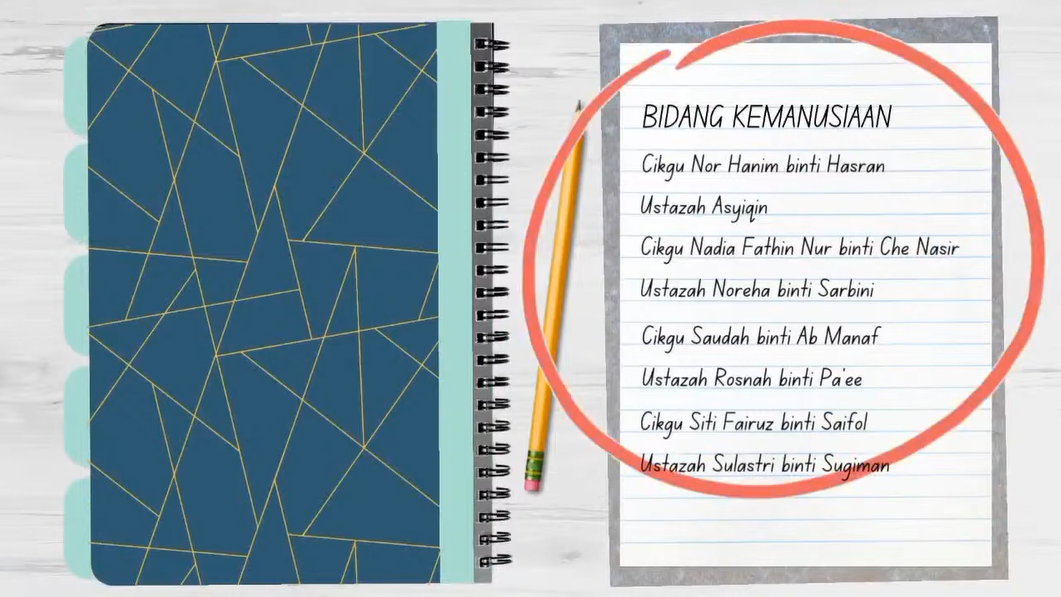 BIDANG KEMANUSIAAN
Cikgu Nor Hanim binti Hasran
Ustazah Asyiqin
Cikgu Nadia Fathin Nur binti Che Nasir
Ustazah Noreha binti Sarbini
Cikgu Saudah binti Ab Manaf
Ustazah Rosnah binti Pa'ee
Cikgu Siti Fairuz binti Saifol
Ustazah Sulastri binti Sugiman